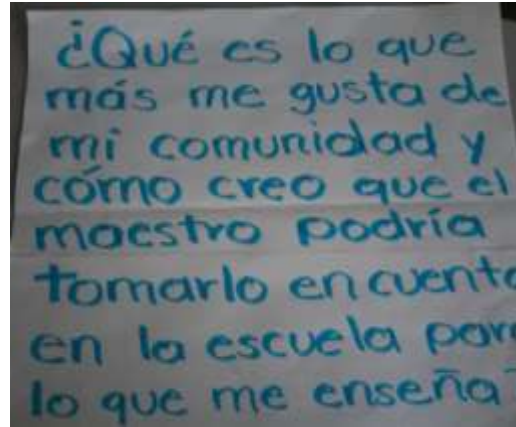 ¿Qué es lo que
más me gusta de
mi comunidad y
cómo creo que el
maestro podría
tomarlo en cuenta
en la escuela para
lo que me enseña?